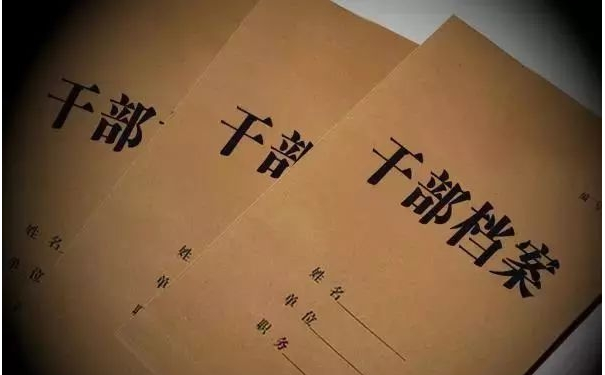 干部
姓名
单位
干部
姓名
单位
干部档案
编号
姓名
单位
职务